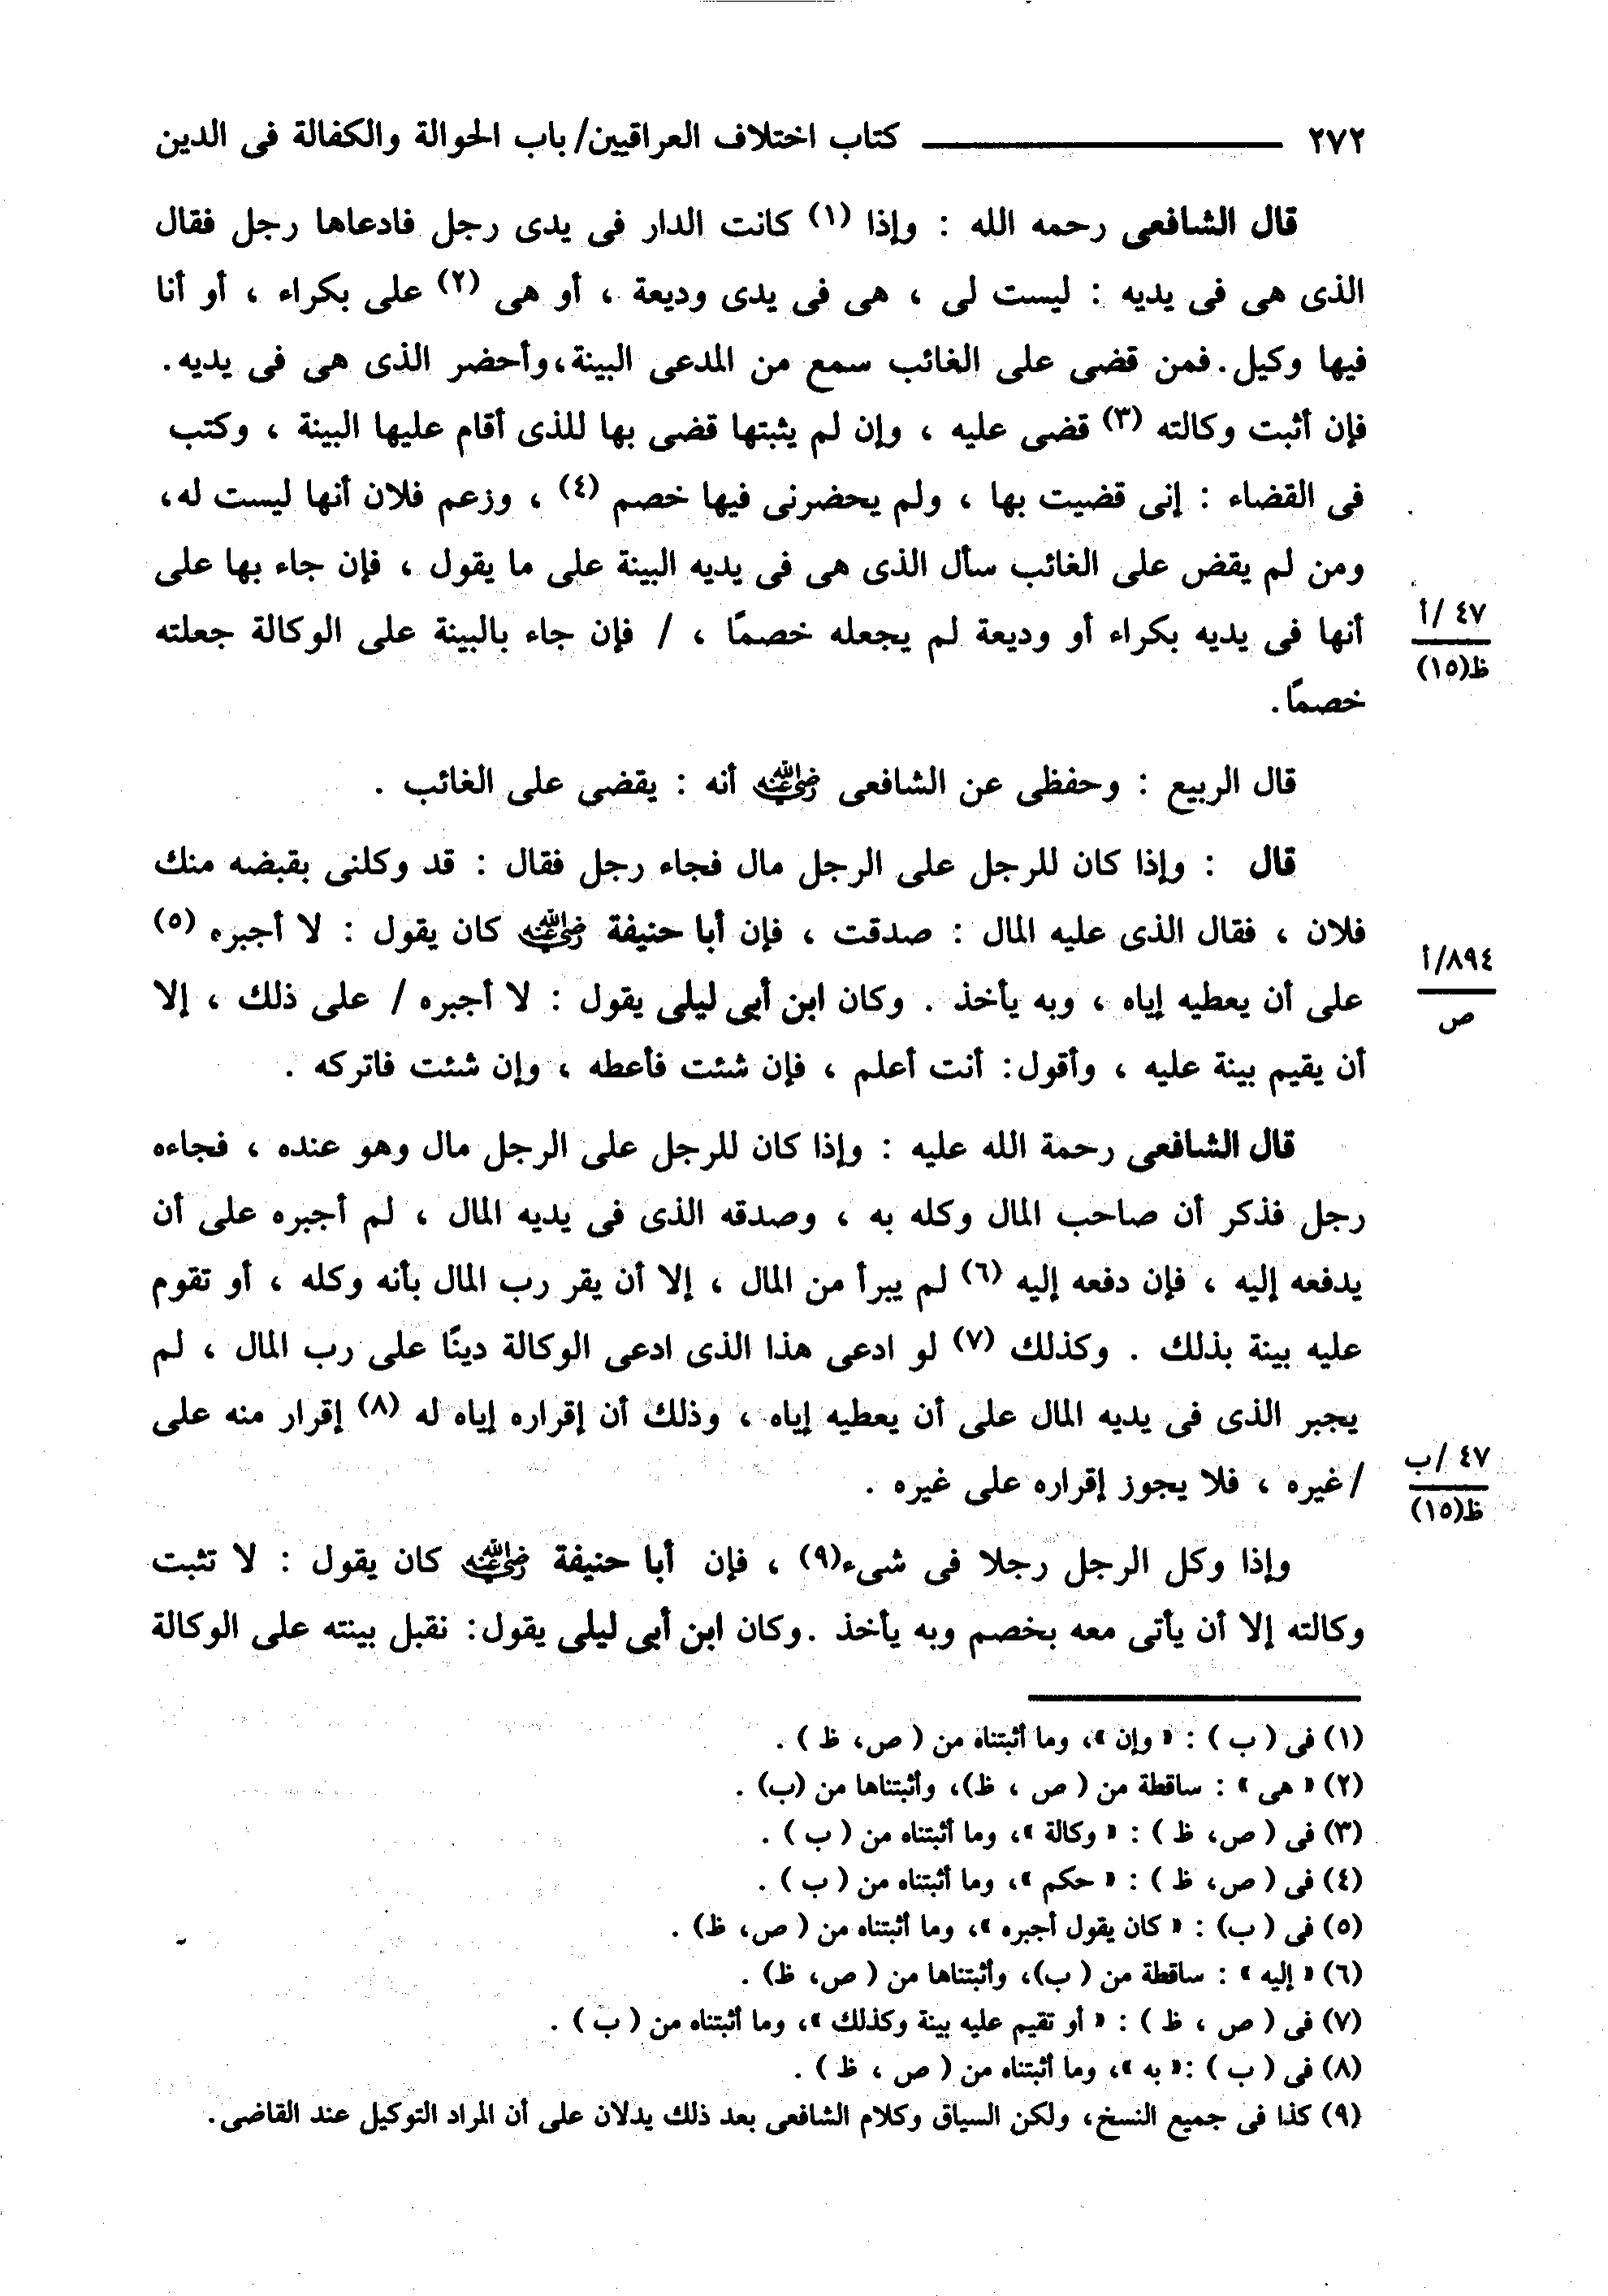 ٢٧٢ كتاب اختلاف العراقيين/ باب الحوالة والكفالة فى الدين
قال الشافعى رحمه الله : وإذا (١) كانت الدار فى يدى رجل فادعاها رجل فقال
الذى هى فى يديه : ليست لى ، هى فى يدى وديعة ، أو هى (٢) على بكراء ، أو أنا
فيها وكيل. فمن قضى على الغائب سمع من المدعى البينة، وأحضر الذى هى فى يديه.
فإن أثبت وكالته (٣) قضى عليه ، وإن لم يثبتها قضى بها للذى أقام عليها البينة ، وكتب
فى القضاء : إنى قضيت بها ، ولم يحضرنى فيها خصم (٤) ، وزعم فلان أنها ليست له،
ومن لم يقض على الغائب سأل الذى هى فى يديه البينة على ما يقول ، فإن جاء بها على
٤٧ /أ
أنها فى يديه بكراء أو وديعة لم يجعله خصمًا ، / فإن جاء بالبينة على الوكالة جعلته
ظ(١٥)
خصمًا.
قال الربيع : وحفظى عن الشافعى رضي الله عنه أنه : يقضى على الغائب .
قال : وإذا كان للرجل على الرجل مال فجاء رجل فقال : قد وكلنى بقبضه منك
فلان ، فقال الذى عليه المال : صدقت ، فإن أبا حنيفة رضي الله عنه كان يقول : لا أجبره (٥)
٨٩٤/أ
على أن يعطيه إياه ، وبه يأخذ . وكان ابن أبى ليلى يقول : لا أجبره / على ذلك ، إلا
ص
أن يقيم بينة عليه ، وأقول: أنت أعلم ، فإن شئت فأعطه ، وإن شئت فاتركه .
قال الشافعى رحمة الله عليه : وإذا كان للرجل على الرجل مال وهو عنده ، فجاءه
رجل فذكر أن صاحب المال وكله به ، وصدقه الذى فى يديه المال ، لم أجبره على أن
يدفعه إليه ، فإن دفعه إليه (٦) لم يبرأ من المال ، إلا أن يقر رب المال بأنه وكله ، أو تقوم
عليه بينة بذلك . وكذلك (٧) لو ادعى هذا الذى ادعى الوكالة دينًا على رب المال ، لم
يجبر الذى فى يديه المال على أن يعطيه إياه ، وذلك أن إقراره إياه له (٨) إقرار منه على
٤٧ /ب
/غيره ، فلا يجوز إقراره على غيره .
ظ(١٥)
وإذا وكل الرجل رجلا فى شىء(٩) ، فإن أبا حنيفة رضي الله عنه كان يقول : لا تثبت
وكالته إلا أن يأتى معه بخصم وبه يأخذ .وكان ابن أبى ليلى يقول: نقبل بينته على الوكالة
(١) فى ( ب ) : « وإن »، وما أثبتناه من ( ص، ظ ) .
(٢) « هى » : ساقطة من ( ص ، ظ)، وأثبتناها من (ب) .
(٣) فى ( ص، ظ ) : « وكالة »، وما أثبتناه من ( ب ) .
(٤) فى ( ص، ظ ) : « حكم »، وما أثبتناه من ( ب ) .
(٥) فى ( ب) : « كان يقول أجبره »، وما أثبتناه من ( ص، ظ) .
(٦) « إليه » : ساقطة من ( ب)، وأثبتناها من ( ص، ظ) .
(٧) فى ( ص ، ظ ) : « أو تقيم عليه بينة وكذلك »، وما أثبتناه من ( ب ) .
(٨) فى ( ب ) :« به »، وما أثبتناه من ( ص ، ظ ) .
(٩) كذا فى جميع النسخ، ولكن السياق وكلام الشافعى بعد ذلك يدلان على أن المراد التوكيل عند القاضى.